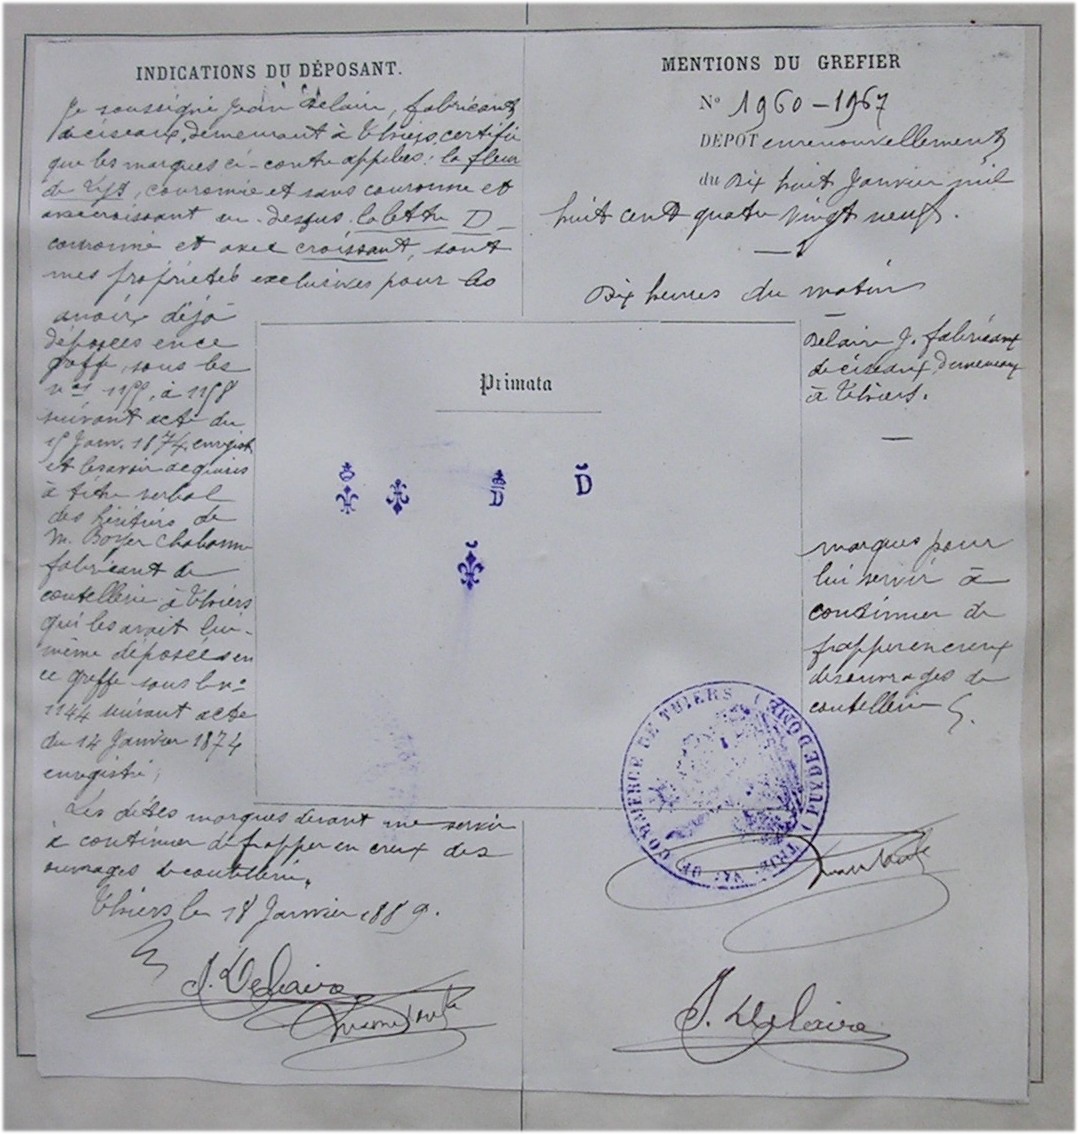 INDICATIONS DU DÉPOSANT.
Je soussigné Jean Delaire, fabricant
de ciseaux, demeurant à Thiers, certifie
que les marques ci-contre appelées: la fleur
de Lys, couronnée et sans couronne et
avec croissant au-dessus. la lettre D
couronné et avec croissant, sont
mes propriétés exclusives pour les
avoir déjà
déposées en ce
greffe, sous les
nos à 1158
suivant acte du
Janv. 1874, enregist
et les avoir acquises
à titre verbal
des héritiers de
M. Boyer Chabanne
fabricant de
coutellerie à Thiers
qui les avait lui-
même déposées en
ce greffe sous le no
1144 suivant acte
du 14 Janvier 1874
enregistré,
Les dites marques devant me servir
à continuer de frapper en creux des
ouvrages de coutellerie.
Thiers le 18 Janvier 1889.
J. Delaire
MENTIONS DU GREFIER
No 1960-1967
DÉPÔT en renouvellement
du Dix huit Janvier mil
huit cent quatre vingt neuf.
Dix heures du matin
Delaire J. fabricant
de ciseaux, demeurant
à Thiers.
Primata
D
D
marques pour
lui servir à
continuer de
frapper en creux
des ouvrages de
coutellerie
TRIB. DE COMMERCE DE THIERS (PUY DE DOME)
J. Delaire